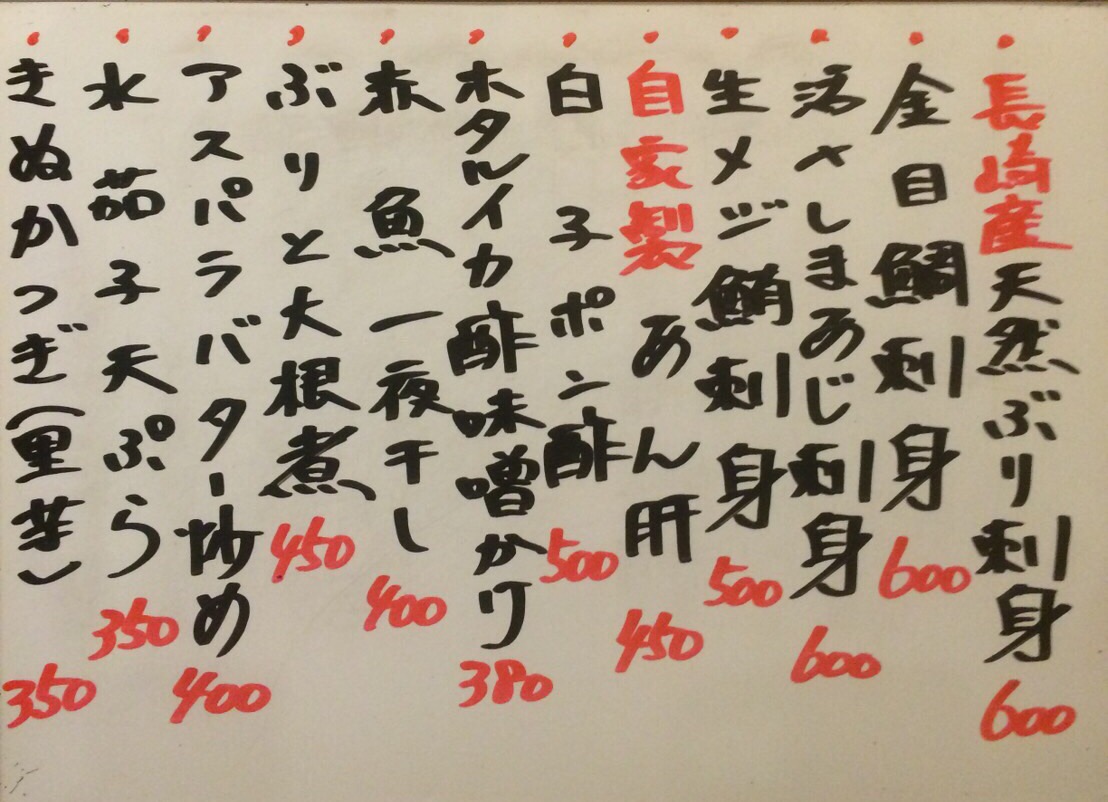 ・長崎産天然ぶり刺身 600
・金目鯛刺身 600
・活〆しまあじ刺身 600
・生メジ鮪刺身 500
・自家製あん肝 450
・白子ポン酢 500
・ホタルイカ酢味噌かけ 380
・赤魚一夜干し 400
・ぶりと大根煮 450
・アスパラバター炒め 400
・水茄子天ぷら 350
・きぬかつぎ(里芋) 350